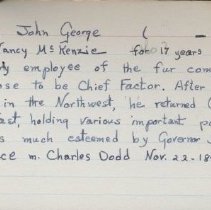 John George ( -
ancy McKenzie for 17 years
y employee of the fur com
ose to be Chief Factor. After
in the Northwest, he returned
ast, holding various important po
s much esteemed by Governor
ce m. Charles Dodd Nov. 22-18